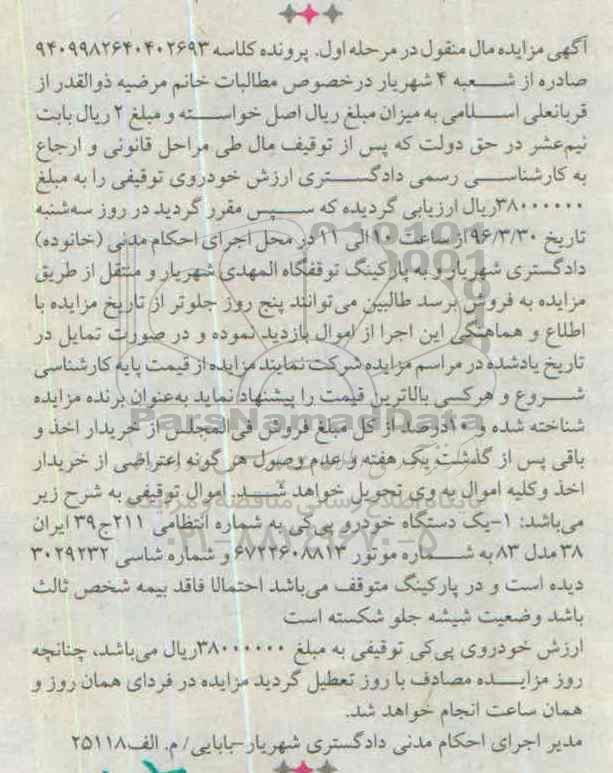 آگهی مزایده مال منقول در مرحله اول. پرونده کلاسه ۹۴۰۹۹۸۲۶۴۰۴۰۲۶۹۳
صادره از شعبه ۴ شهریار درخصوص مطالبات خانم مرضیه ذوالقدر از
قربانعلی اسلامی به میزان مبلغ ریال اصل خواسته و مبلغ ۲ ریال بابت
نیم‌عشر در حق دولت که پس از توقیف مال طی مراحل قانونی و ارجاع
به کارشناسی رسمی دادگستری ارزش خودروی توقیفی را به مبلغ
۳۸۰۰۰۰۰۰ریال ارزیابی گردیده که سپس مقرر گردید در روز سه‌شنبه
تاریخ ۹۶/۳/۳۰ از ساعت ۱۰ الی ۱۱ در محل اجرای احکام مدنی (خانوده)
دادگستری شهریار و به پارکینگ توقفگاه المهدی شهریار و منتقل از طریق
مزایده به فروش برسد طالبین می‌توانند پنج روز جلوتر از تاریخ مزایده با
اطلاع و هماهنگی این اجرا از اموال بازدید نموده و در صورت تمایل در
تاریخ یادشده در مراسم مزایده شرکت نمایند مزایده از قیمت پایه کارشناسی
شروع و هرکسی بالاترین قیمت را پیشنهاد نماید به‌عنوان برنده مزایده
شناخته شده و ۱۰درصد از کل مبلغ فروش فی‌المجلس از خریدار اخذ و
باقی پس از گذشت یک هفته و عدم وصول هر گونه اعتراضی از خریدار
اخذ وکلیه اموال به وی تحویل خواهد شد. اموال توقیفی به شرح زیر
می‌باشد: ۱-یک دستگاه خودرو پی‌کی به شماره انتظامی ۲۱۱ج۳۹ ایران
۳۸ مدل ۸۳ به شماره موتور ۶۷۲۲۶۰۸۸۱۳ و شماره شاسی ۳۰۲۹۲۳۲
دیده است و در پارکینگ متوقف می‌باشد احتمالا فاقد بیمه شخص ثالث
باشد وضعیت شیشه جلو شکسته است
ارزش خودروی پی‌کی توقیفی به مبلغ ۳۸۰۰۰۰۰۰ریال می‌باشد، چنانچه
روز مزایده مصادف با روز تعطیل گردید مزایده در فردای همان روز و
همان ساعت انجام خواهد شد.
مدیر اجرای احکام مدنی دادگستری شهریار-بابایی/ م. الف۲۵۱۱۸
ParsNamadData
پایگاه اطلاع رسانی مناقصه و مزایده
۰۲۱-۸۸۳۴۹۶۷۰-۵